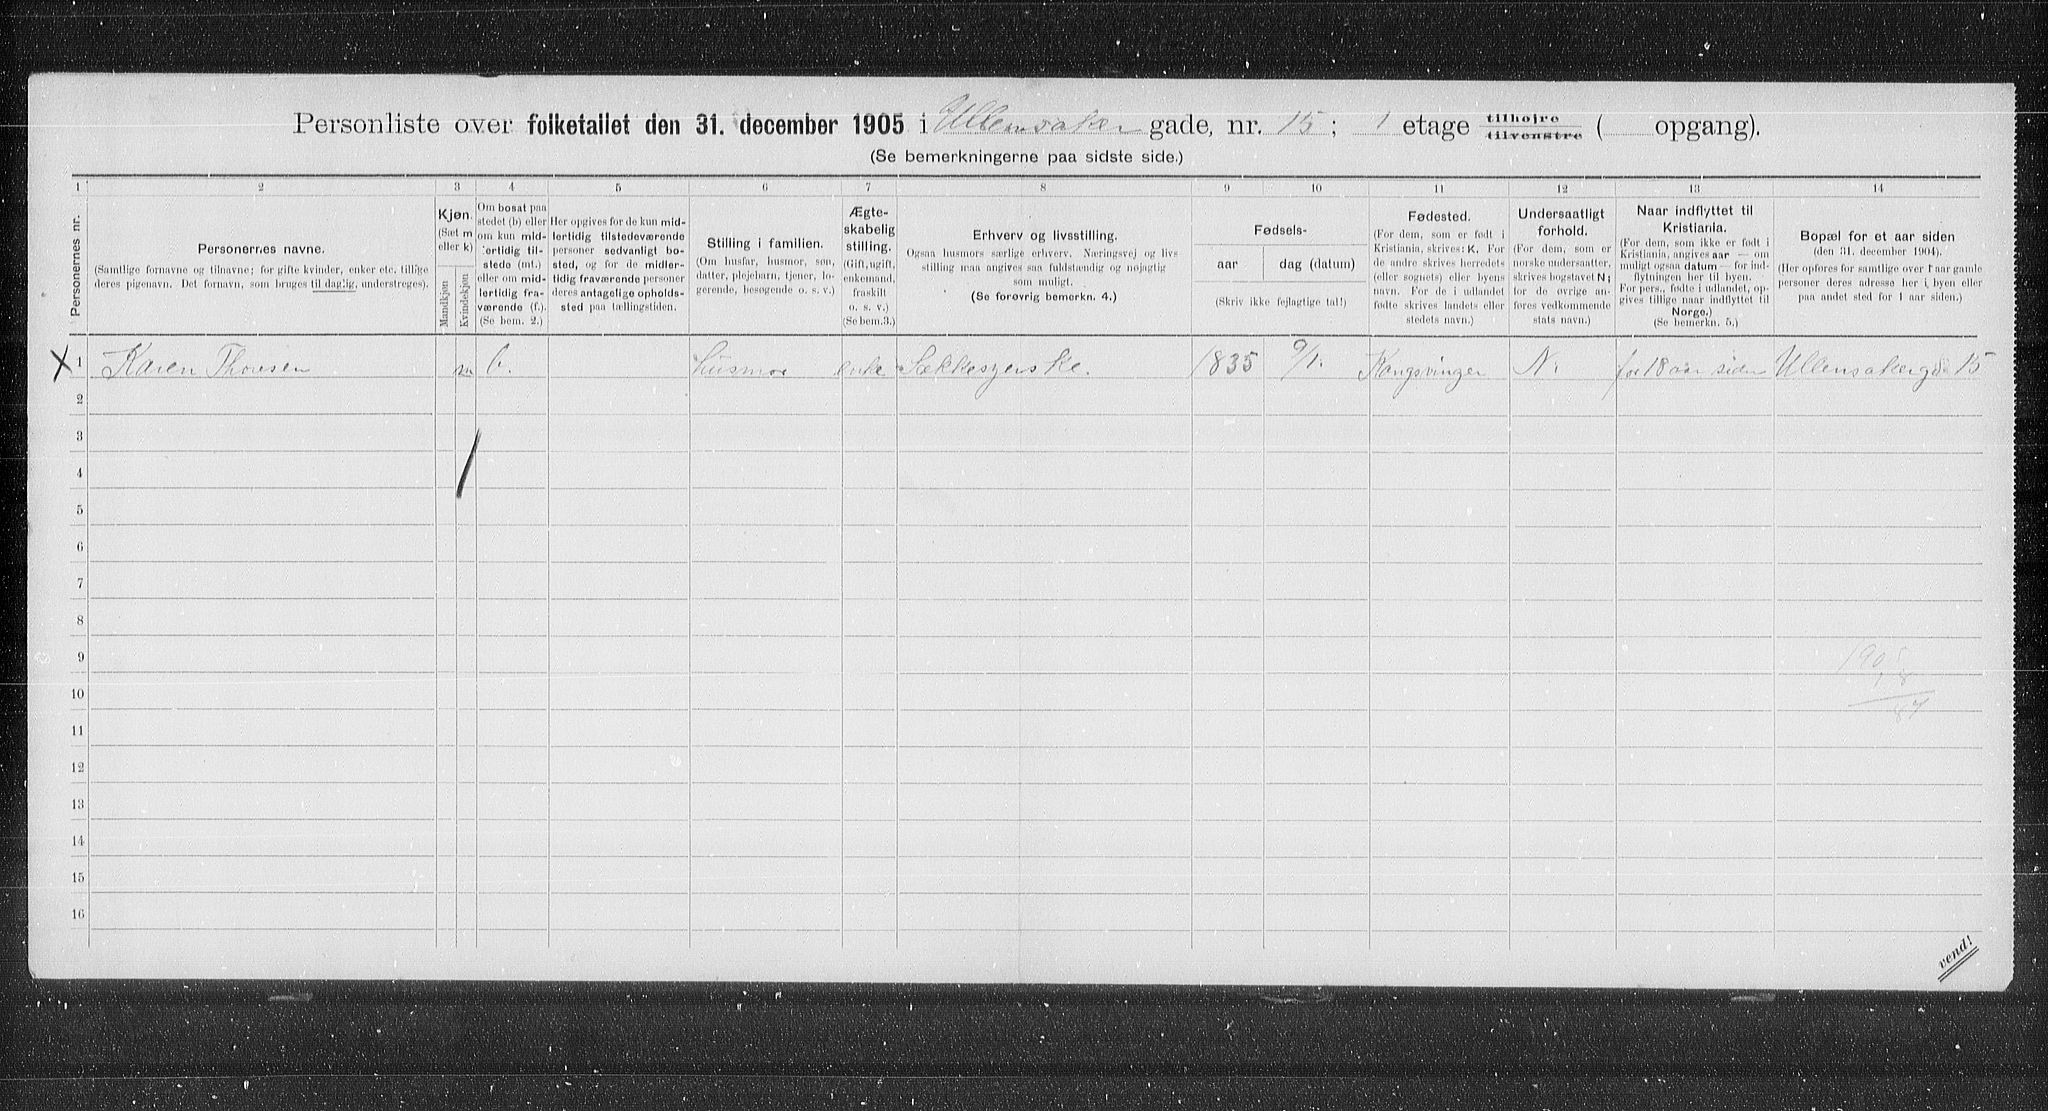 Personliste over folketallet den 31. december 1905 i Ullensaker gade, nr. 15; 1 etage tilhøjre tilvenstre ( opgang).
(Se bemerkningerne paa sidste side.)
1 2 3 4 5 6 7 8 9 10 11 12 13 14
Personernes nr.
Personernes navne.
(Samtlige fornavne og tilnavne; for gifte kvinder, enker etc. tillige
deres pigenavn. Det fornavn, som bruges til daglig, understreges).
Kjøn.
(Sæt m
eller k)
Mandkjøn
Kvindekjøn
Om bosat paa
stedet (b) eller
om kun mid-
lertidig til-
stede (mt.)
eller om mid-
lertidig fra-
værende (f.).
(Se bem. 2.)
Her opgives for de kun mid-
lertidig tilstedeværende
personer sedvanligt bo-
sted, og for de midler-
tidig fraværende personer
deres antagelige opholds-
sted paa tællingstiden.
Stilling i familien.
(Om husfar, husmor, søn,
datter, plejebarn, tjener, lo-
gerende, besøgende o. s. v.)
Ægte-
skabelig
stilling.
(Gift, ugift,
enkemand,
fraskilt
o. s. v.)
(Se bem. 3.)
Erhverv og livsstilling.
Ogsaa husmors særlige erhverv. Næringsvej og livs
stilling maa angives saa fuldstændig og nøjagtig
som muligt.
(Se forøvrig bemerkn. 4.)
Fødsels-
aar
dag (datum)
(Skriv ikke fejlagtige tal!)
Fødested.
(For dem, som er født i
Kristiania, skrives: K. For
de andre skrives herredets
(eller sognets) eller byens
navn. For de i udlandet
fødte skrives landets eller
stedets navn.)
Undersaatligt
forhold.
(For dem, som er
norske undersaatter,
skrives bogstavet N;
for de øvrige an-
føres vedkommende
stats navn.)
Naar indflyttet til
Kristiania.
(For dem, som ikke er født i
Kristiania, angives aar — om
muligt ogsaa datum — for ind-
flytningen her til byen.
For pers., fødte i udlandet, op-
gives tillige naar indflyttet til
Norge.)
(Se bemerkn. 5.)
Bopæl for et aar siden
(den 31. december 1904).
(Her opføres for samtlige over 1 aar gamle
personer deres adresse her i byen eller
paa andet sted for 1 aar siden.)
X 1 Karen Thoresen m b. husmor enke Sækkesyerske. 1835 9/1. Kongsvinger N. for 18 aar siden Ullensakergd 15
2
3
4
5
6
7
8
9
10
11
12
13
14
15
16
vend!